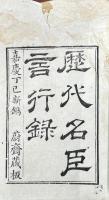 嘉慶丁巳新鐫
歷代名臣
言行錄
蔚齋藏板